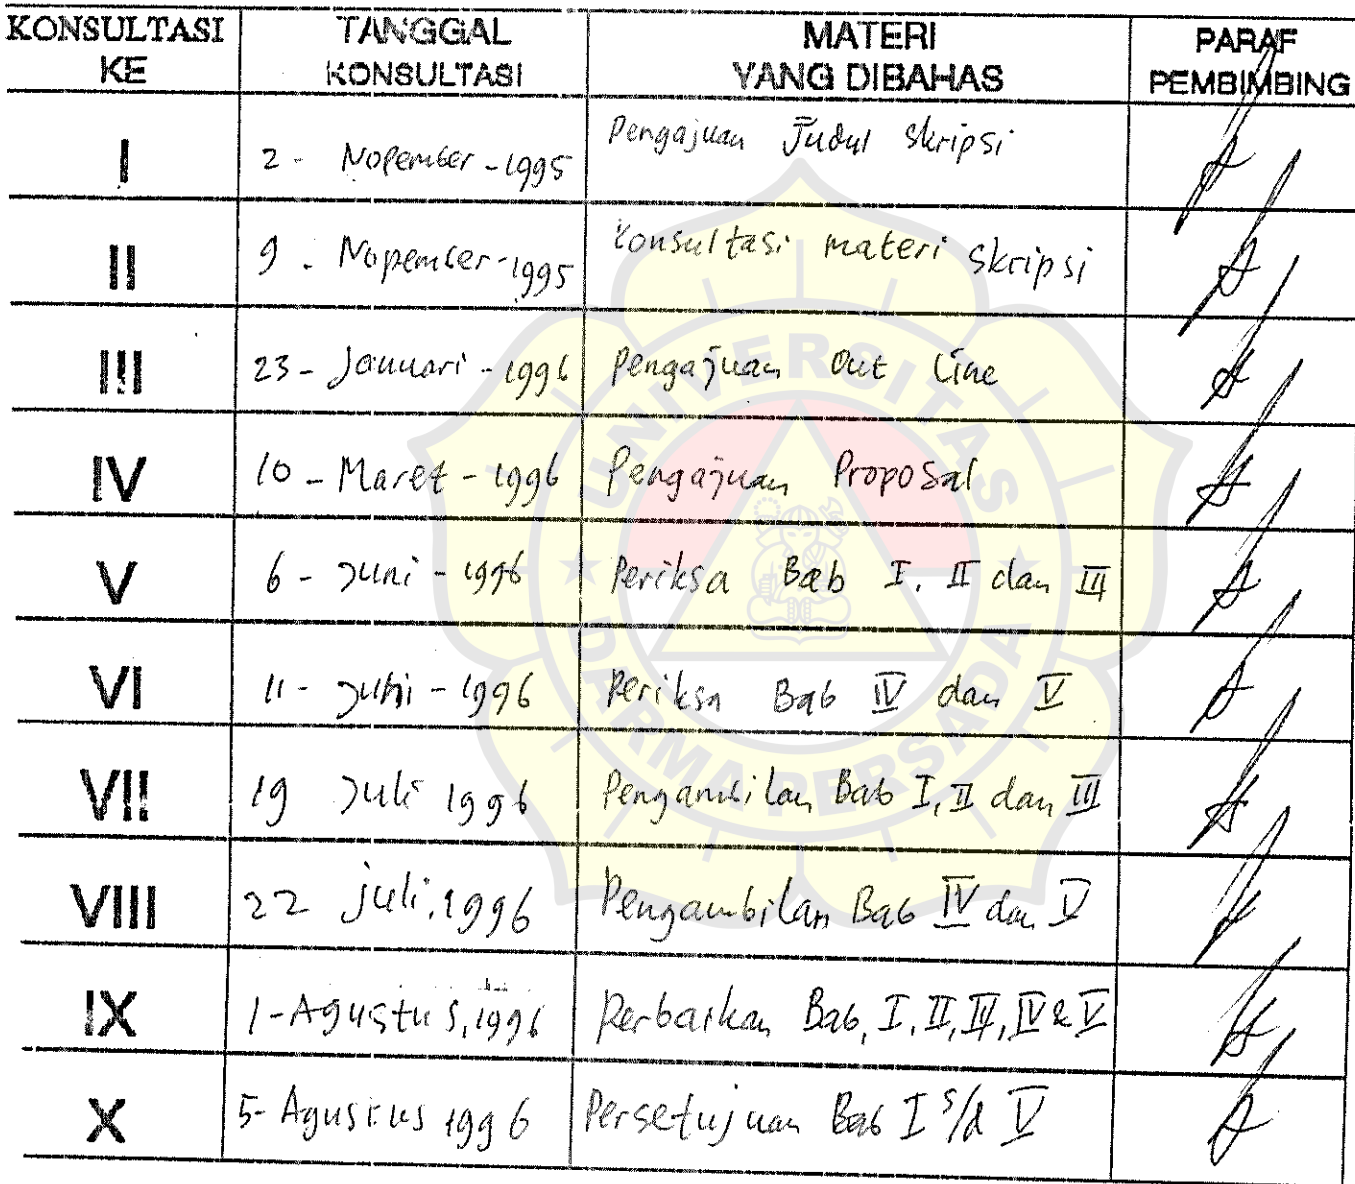 KONSULTASI KE TANGGAL KONSULTASI MATERI YANG DIBAHAS PARAF PEMBIMBING
I 2 - Nopember - 1995 Pengajuan Judul Skripsi
II 9 - Nopember - 1995 Konsultasi materi Skripsi
III 23 - Januari - 1996 Pengajuan Out Line
IV 10 - Maret - 1996 Pengajuan Proposal
V 6 - Juni - 1996 Periksa Bab I, II dan III
VI 11 - Juni - 1996 Periksa Bab IV dan V
VII 19 Juli 1996 Pengambilan Bab I, II dan III
VIII 22 juli, 1996 Pengambilan Bab IV dan V
IX 1 - Agustus, 1996 Perbaikan Bab, I, II, III, IV & V
X 5 - Agustus 1996 Persetujuan Bab I s/d V
UNIVERSITAS
DARMA PERSADA